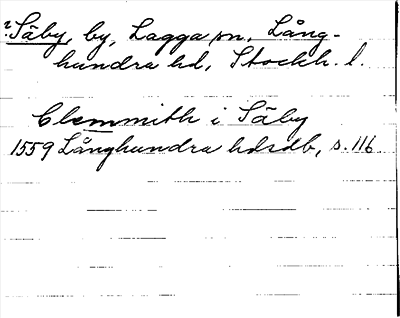 ? Säby, by, Lagga sn, Lång-
hundra hd, Stockh. l.
Clemmith i Säby
1559 Långhundra hdsdb, s. 116